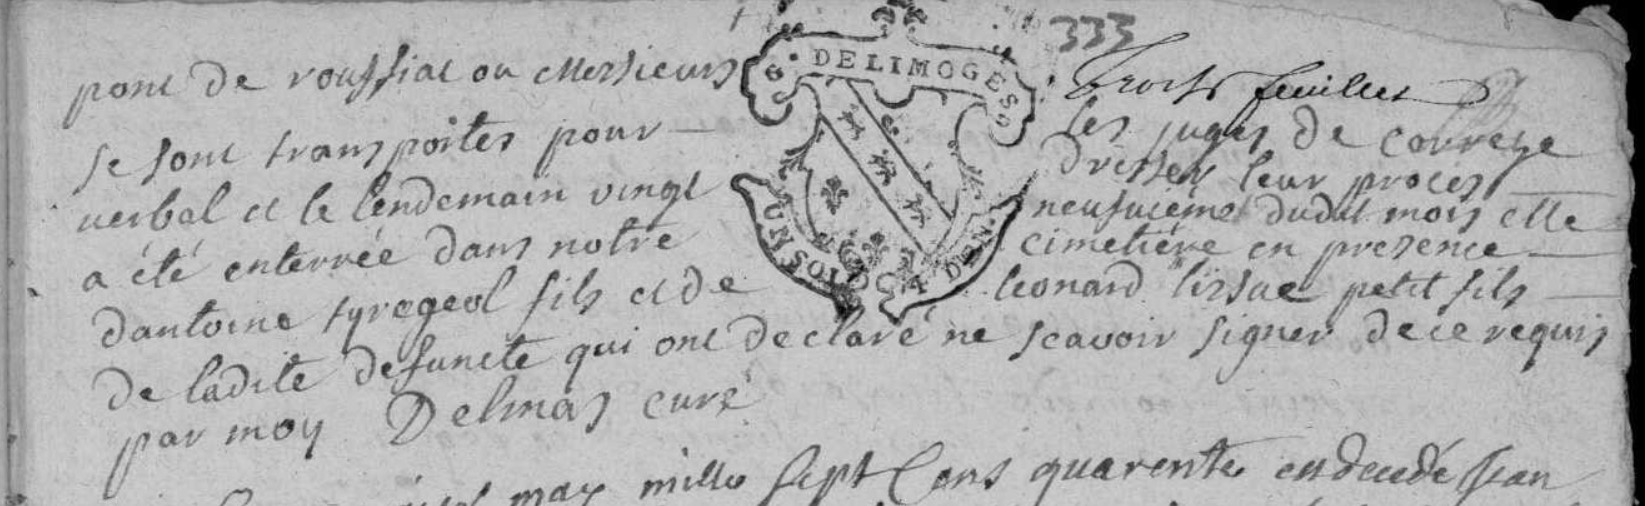 333
G. DE LIMOGES
UN SOL DEN.
trois feuillet
pont de roussiat ou messieurs les juges de correze
se sont transportes pour dresser leur proces
verbal et le lendemain vingt neufvieme dudit mois elle
a été enterrée dans notre cimetiére en presence
dantoine tyregeol fils et de leonard lissac petit fils
de ladite defuncte qui ont declaré ne scavoir signer de ce requis
par moy Delmas curé
may mille sept Cens quarente est decedé Jean